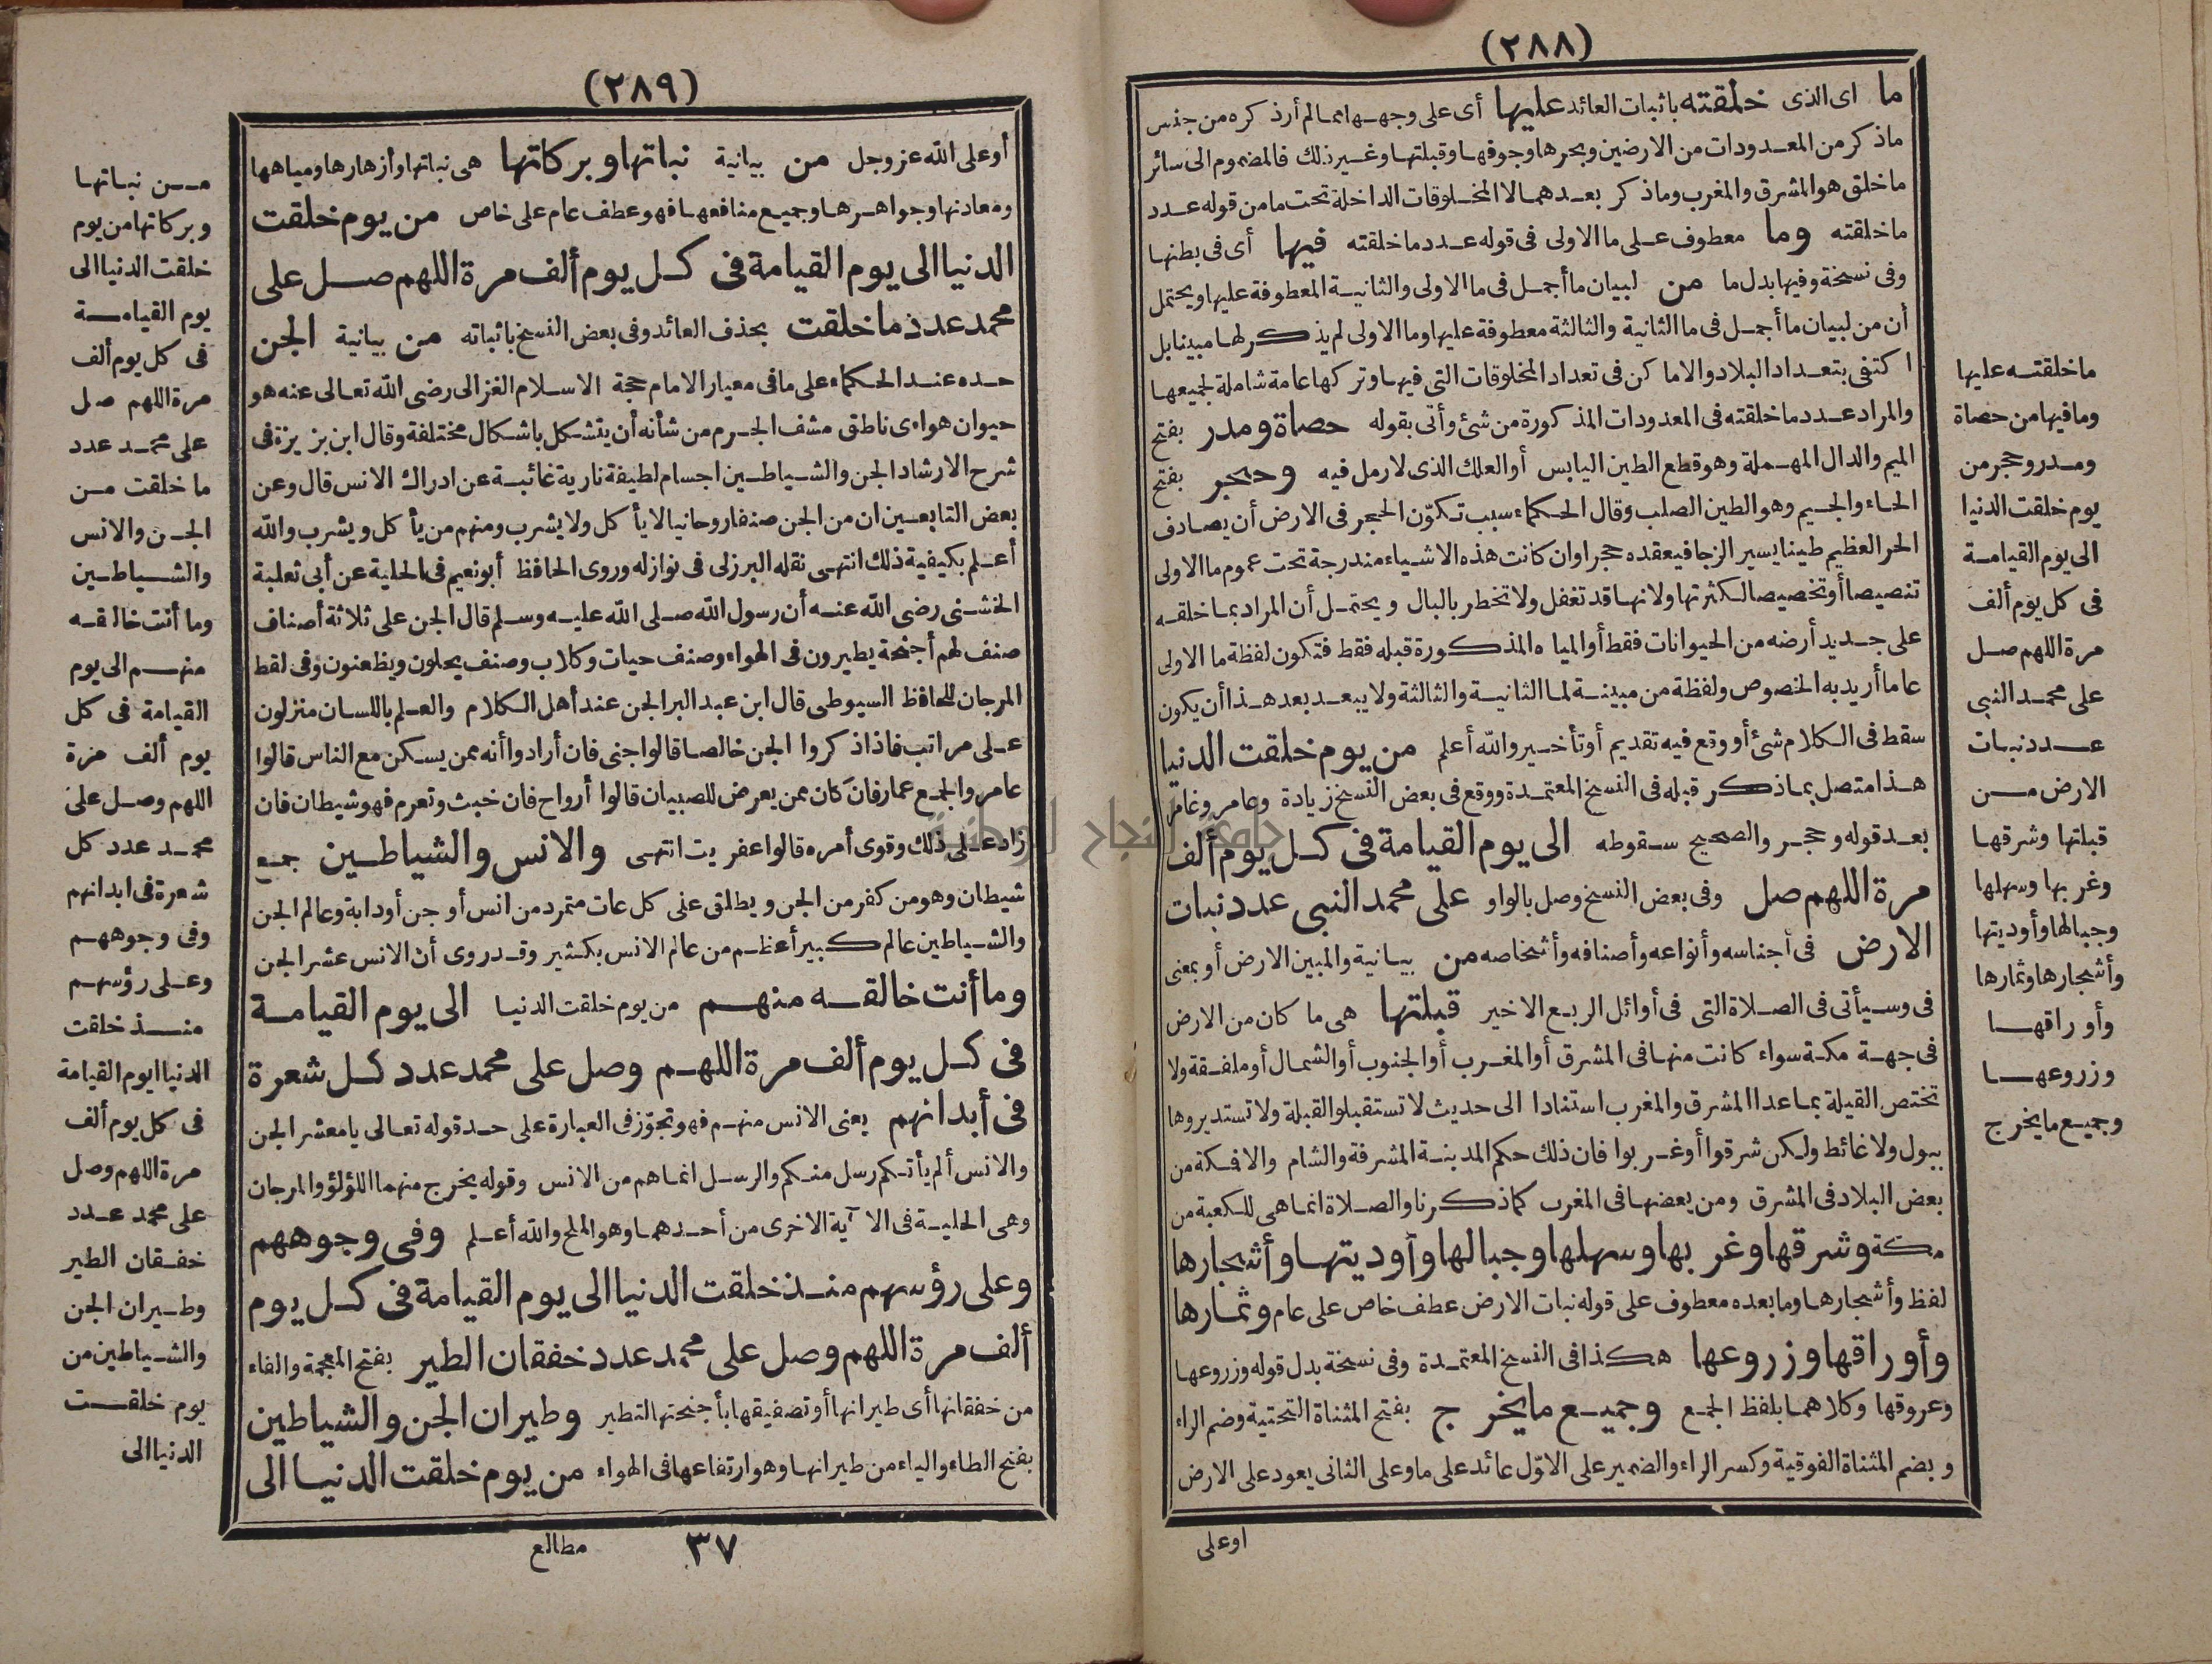 (٢٨٨)
ما اى الذى خلقته باثبات العائد عليها أى على وجهها مما لم أذكره من جنس
ماذكر من المعدودات من الارضين وبحرها وجوفها وقبلتها وغير ذلك فالمضموم الى سائر
ماخلق هو المشرق والمغرب وماذكر بعدهما لا المخلوقات الداخلة تحت ما من قوله عدد
ماخلقته وما معطوف على ما الاولى فى قوله عدد ماخلقته فيها أى فى بطنها
وفى نسخة وفيها بدل ما من لبيان ما أجمل فى ما الاولى والثانية المعطوفة عليها ويحتمل
أن من لبيان ما أجمل فى ما الثانية والثالثة معطوفة عليها وما الاولى لم يذكر لها مبينا بل
اكتفى بتعداد البلاد والاماكن فى تعداد المخلوقات التى فيها وتركها عامة شاملة لجميعها
والمراد عدد ماخلقته فى المعدودات المذكورة من شئ وأتى بقوله حصاة ومدر بفتح
الميم والدال المهملة وهو قطع الطين اليابس أو العلك الذى لارمل فيه وحجر بفتح
الحاء والجيم وهو الطين الصلب وقال الحكماء سبب تكوّن الحجر فى الارض أن يصادف
الحر العظيم طينا يسير الزجا فيعقده حجرا وان كانت هذه الاشياء مندرجة تحت عموم ما الاولى
تنصيصا أو تخصيصا لكثرتها ولانها قد تغفل ولا تخطر بالبال ويحتمل أن المراد بما خلقه
على جديد أرضه من الحيوانات فقط أو المياه المذكورة قبله فقط فتكون لفظة ما الاولى
عاما أريد به الخصوص ولفظة من مبينة لما الثانية والثالثة ولا يبعد بعد هذا أن يكون
سقط فى الكلام شئ أو وقع فيه تقديم أو تأخير والله أعلم من يوم خلقت الدنيا
هذا متصل بما ذكر قبله فى النسخ المعتمدة ووقع فى بعض النسخ زيادة وعامر وغامر
بعد قوله وحجر والصحيح سقوطه الى يوم القيامة فى كل يوم ألف
مرة اللهم صل وفى بعض النسخ وصل بالواو على محمد النبى عدد نبات
الارض فى أجناسه وأنواعه وأصنافه وأشخاصه من بيانية والمبين الارض أو بمعنى
فى وسيأتى فى الصلاة التى فى أوائل الربع الاخير قبلتها هى ما كان من الارض
فى جهة مكة سواء كانت منها فى المشرق أو المغرب أو الجنوب أو الشمال أو ملفقة ولا
تختص القبلة بماعدا المشرق والمغرب استنادا الى حديث لا تستقبلوا القبلة ولا تستدبروها
ببول ولا غائط ولكن شرقوا أو غربوا فان ذلك حكم المدينة المشرفة والشام والافمكة من
بعض البلاد فى المشرق ومن بعضها فى المغرب كماذكرنا والصلاة انماهى للكعبة من
مكة وشرقها وغربها وسهلها وجبالها وأوديتها وأشجارها
لفظ وأشجارها وما بعده معطوف على قوله نبات الارض عطف خاص على عام وثمارها
وأوراقها وزروعها هكذا فى النسخ المعتمدة وفى نسخة بدل قوله وزروعها
وعروقها وكلاهما بلفظ الجمع وجميع مايخرج بفتح المثناة التحتية وضم الراء
وبضم المثناة الفوقية وكسر الراء والضمير على الاوّل عائد على ما وعلى الثانى يعود على الارض
اوعلى
ماخلقته عليها
ومافيها من حصاة
ومدر وحجر من
يوم خلقت الدنيا
الى يوم القيامة
فى كل يوم ألف
مرة اللهم صل
على محمد النبى
عدد نبات
الارض من
قبلتها وشرقها
وغربها وسهلها
وجبالها وأوديتها
وأشجارها وثمارها
وأوراقها
وزروعها
وجميع مايخرج
(٢٨٩)
أو على الله عز وجل من بيانية نباتها وبركاتها هى نباتها وأزهارها ومياهها
ومعادنها وجواهرها وجميع منافعها فهو عطف عام على خاص من يوم خلقت
الدنيا الى يوم القيامة فى كل يوم ألف مرة اللهم صل على
محمد عدد ماخلقت بحذف العائد وفى بعض النسخ باثباته من بيانية الجن
حده عند الحكماء على مافى معيار الامام حجة الاسلام الغزالى رضى الله تعالى عنه هو
حيوان هواءى ناطق مشف الجرم من شأنه أن يتشكل باشكال مختلفة وقال ابن بزيزة فى
شرح الارشاد الجن والشياطين اجسام لطيفة نارية غائبة عن ادراك الانس قال وعن
بعض التابعين ان من الجن صنفا روحانيا لا يأكل ولا يشرب ومنهم من يأكل ويشرب والله
أعلم بكيفية ذلك انتهى نقله البرزلى فى نوازله وروى الحافظ أبو نعيم فى الحلية عن أبى ثعلبة
الخشنى رضى الله عنه أن رسول الله صلى الله عليه وسلم قال الجن على ثلاثة أصناف
صنف لهم أجنحة يطيرون فى الهواء وصنف حيات وكلاب وصنف يحلون ويظعنون وفى لقط
المرجان للحافظ السيوطى قال ابن عبد البر الجن عند أهل الكلام والعلم باللسان منزلون
على مراتب فاذا ذكروا الجن خالصا قالوا جنى فان أرادوا أنه ممن يسكن مع الناس قالوا
عامر والجمع عمار فان كان ممن يعرض للصبيان قالوا أرواح فان خبث وتعرم فهو شيطان فان
زاد على ذلك وقوى أمره قالوا عفريت انتهى والانس والشياطين جمع
شيطان وهو من كفر من الجن ويطلق على كل عات متمرد من انس أو جن أو دابة وعالم الجن
والشياطين عالم كبير أعظم من عالم الانس بكثير وقد روى أن الانس عشر الجن
وما أنت خالقه منهم من يوم خلقت الدنيا الى يوم القيامة
فى كل يوم ألف مرة اللهم وصل على محمد عدد كل شعرة
فى أبدانهم يعنى الانس منهم فهو تجوّز فى العبارة على حد قوله تعالى يامعشر الجن
والانس ألم يأتكم رسل منكم والرسل انماهم من الانس وقوله يخرج منهما اللؤلؤ والمرجان
وهى الحلية فى الآية الاخرى من أحدهما وهو الملح والله أعلم وفى وجوههم
وعلى رؤسهم منذ خلقت الدنيا الى يوم القيامة فى كل يوم
ألف مرة اللهم وصل على محمد عدد خفقان الطير بفتح المعجمة والفاء
من خفقانها أى طيرانها أو تصفيقها بأجنحتها لتطير وطيران الجن والشياطين
بفتح الطاء والياء من طيرانها وهو ارتفاعها فى الهواء من يوم خلقت الدنيا الى
٣٧ مطالع
من نباتها
وبركاتها من يوم
خلقت الدنيا الى
يوم القيامة
فى كل يوم ألف
مرة اللهم صل
على محمد عدد
ماخلقت من
الجن والانس
والشياطين
وما أنت خالقه
منهم الى يوم
القيامة فى كل
يوم ألف مرة
اللهم وصل على
محمد عدد كل
شعرة فى ابدانهم
وفى وجوههم
وعلى رؤسهم
منذ خلقت
الدنيا ايوم القيامة
فى كل يوم ألف
مرة اللهم وصل
على محمد عدد
خفقان الطير
وطيران الجن
والشياطين من
يوم خلقت
الدنيا الى
جامعة النجاح الوطنية